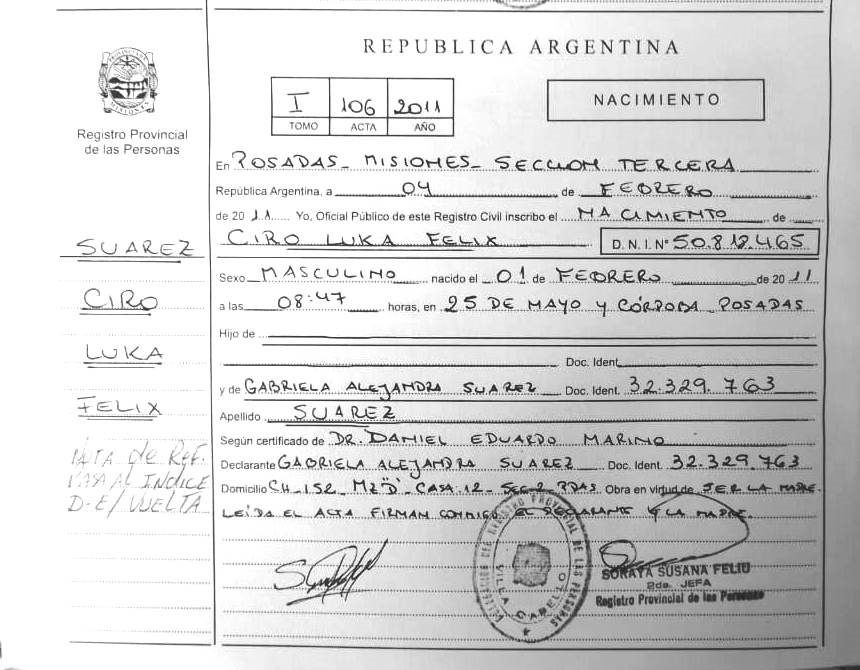 REPUBLICA ARGENTINA
I 106 2011
TOMO ACTA AÑO
NACIMIENTO
Registro Provincial
de las Personas
En POSADAS - MISIONES - SECCION TERCERA
República Argentina, a 04 de FEBRERO
de 2011 Yo, Oficial Público de este Registro Civil inscribo el NACIMIENTO de
CIRO LUKA FELIX D.N.I. Nº 50.812.465
SUAREZ
CIRO
LUKA
FELIX
NOTA de REF.
PASA AL INDICE
D-E/VUELTA
Sexo MASCULINO nacido el 01 de FEBRERO de 2011
a las 08:47 horas, en 25 DE MAYO y CÓRDOBA POSADAS
Hijo de
Doc. Ident.
y de GABRIELA ALEJANDRA SUAREZ Doc. Ident. 32.329.763
Apellido SUAREZ
Según certificado de DR. DANIEL EDUARDO MARINO
Declarante GABRIELA ALEJANDRA SUAREZ Doc. Ident. 32.329.763
Domicilio CH-152 MZ"D" CASA-12- SEC-2 PDAS Obra en virtud de SER LA MADRE.
LEÍDA EL ACTA FIRMAN CONMIGO EL DECLARANTE Y LA MADRE.
DELEGACION DEL REGISTRO PROVINCIAL DE LAS PERSONAS
VILLA CABELLO
SORAYA SUSANA FELIU
2da. JEFA
Registro Provincial de las Personas